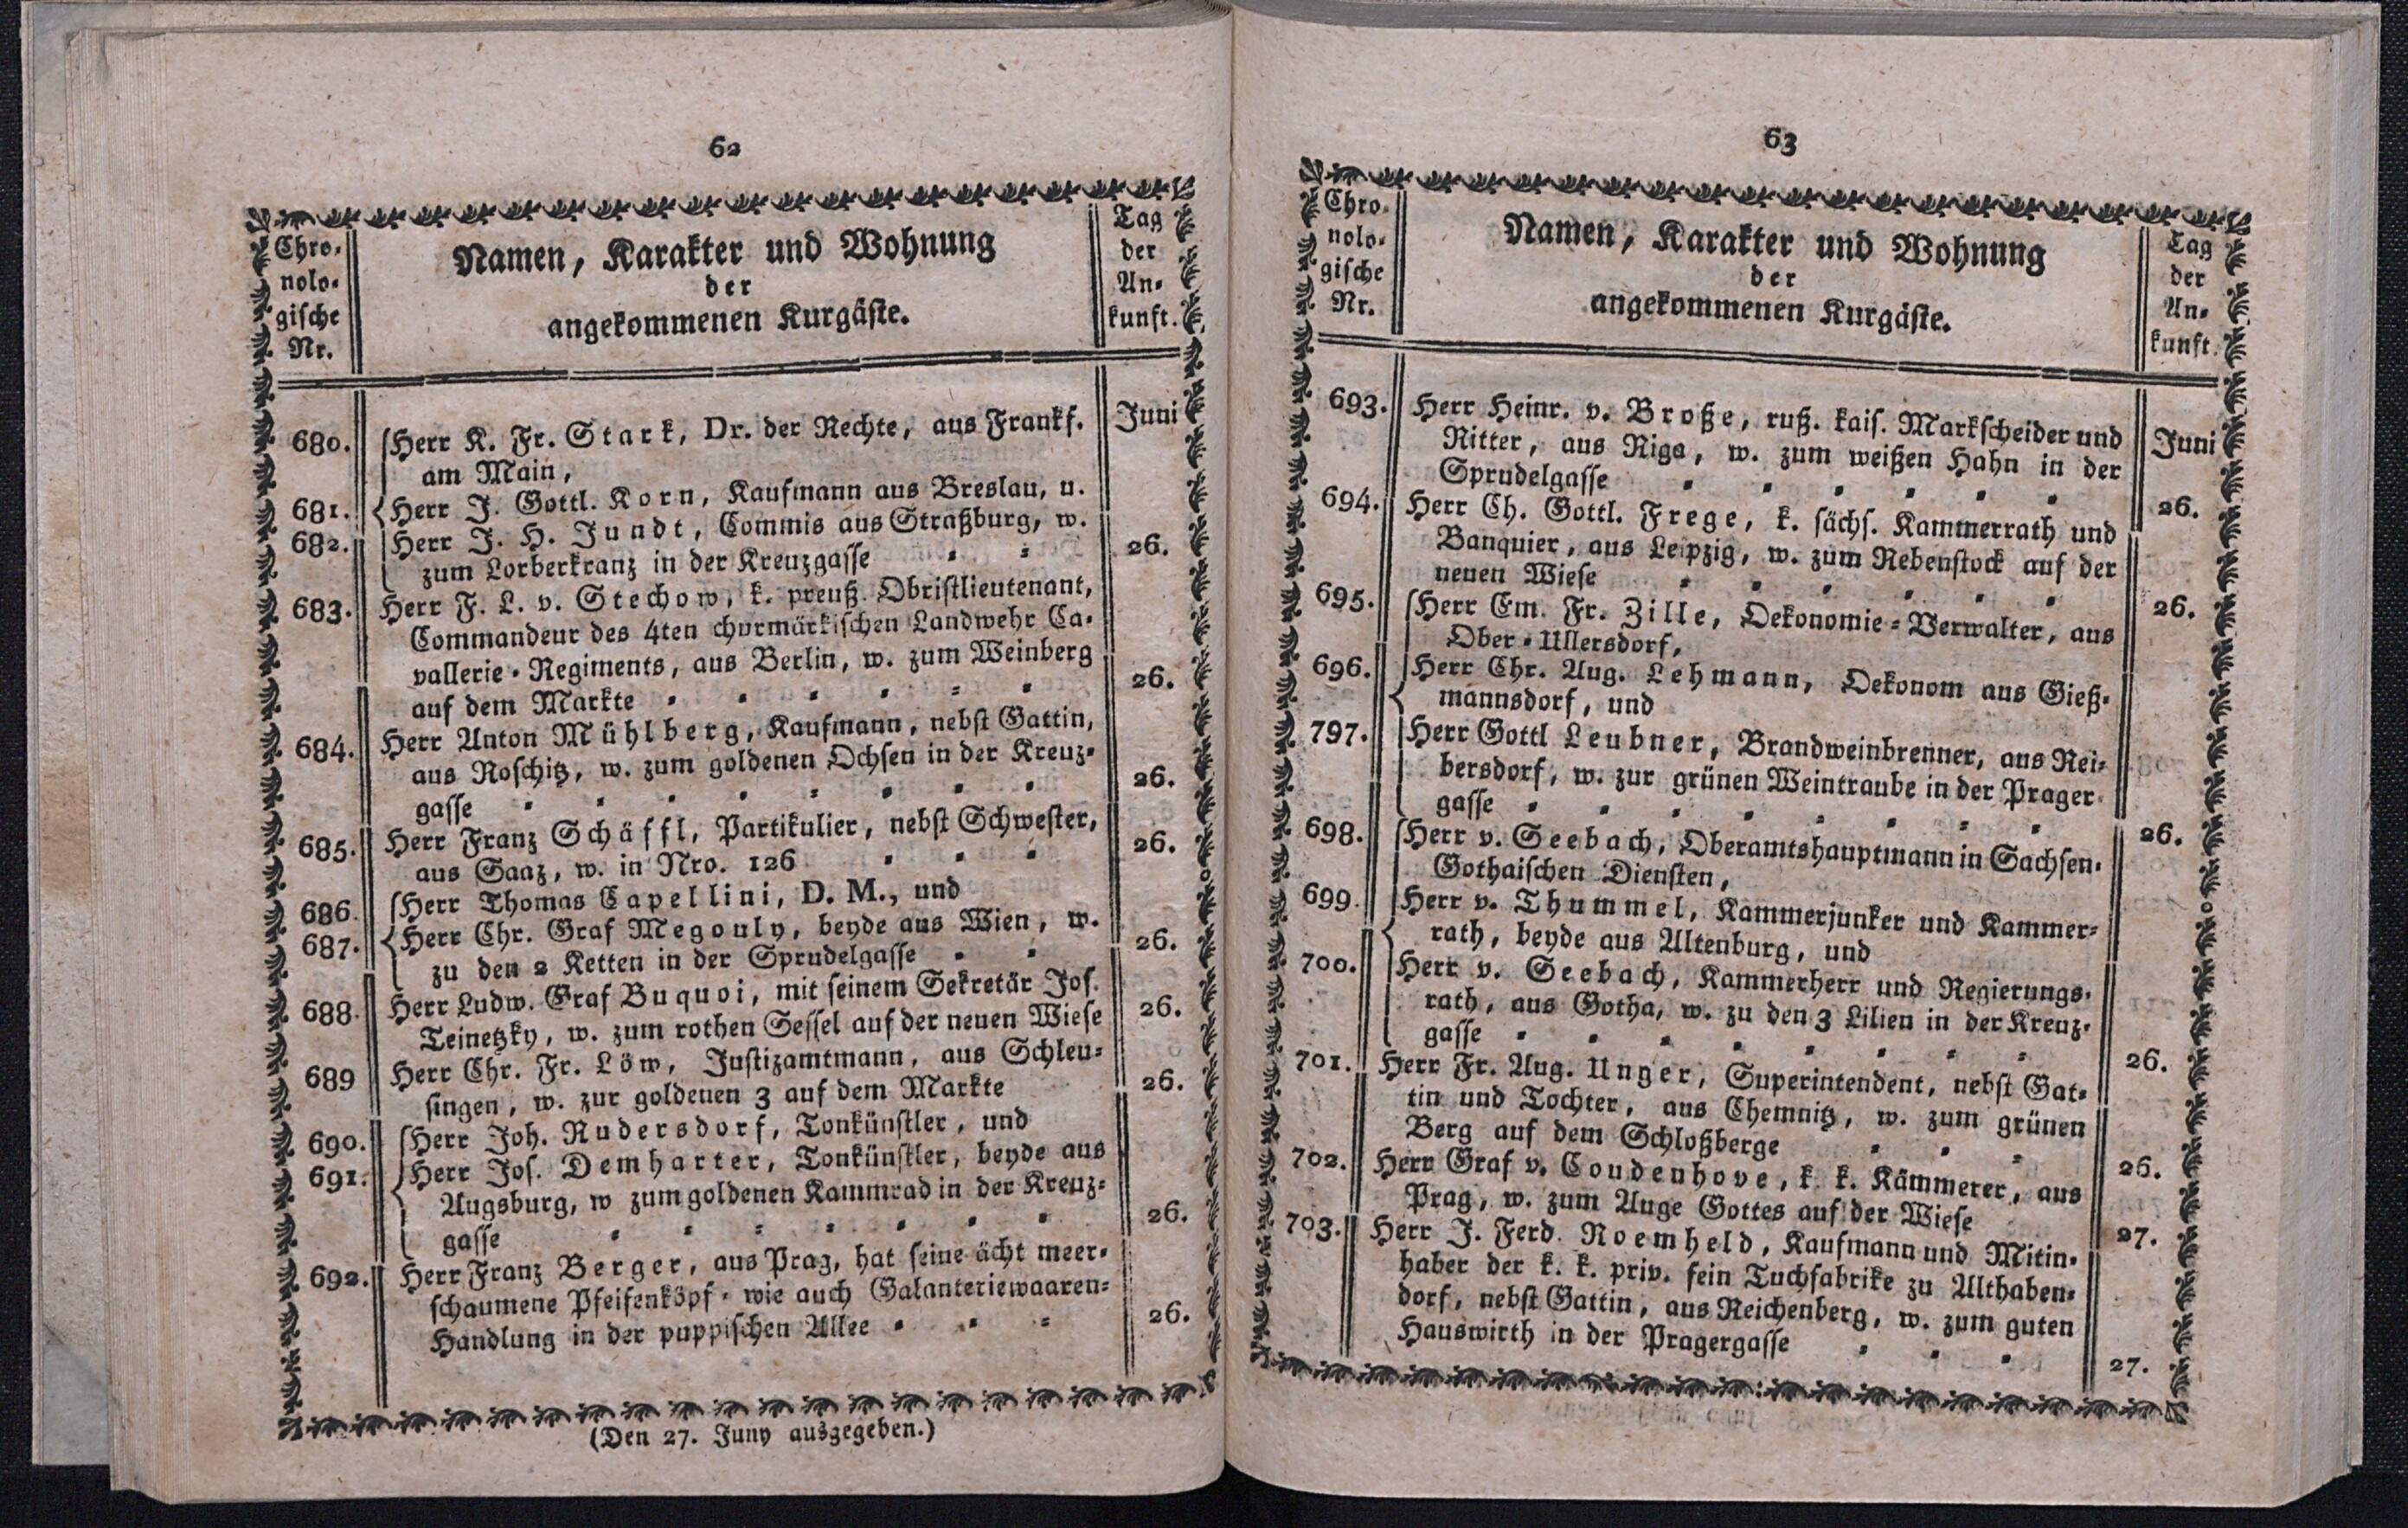 62
Chro-
nolo-
gische
Nr.
Namen, Karakter und Wohnung
der
angekommenen Kurgäste.
Tag
der
An-
kunft.
Juni
680. Herr K. Fr. Stark, Dr. der Rechte, aus Frankf.
am Main,
681. Herr J. Gottl. Korn, Kaufmann aus Breslau, u.
682. Herr J. H. Jundt, Commis aus Straßburg, w.
zum Lorberkranz in der Kreuzgasse 26.
683. Herr F. L. v. Stechow, k. preuß. Obristlieutenant,
Commandeur des 4ten churmärkischen Landwehr Ca-
vallerie-Regiments, aus Berlin, w. zum Weinberg
auf dem Markte 26.
684. Herr Anton Mühlberg, Kaufmann, nebst Gattin,
aus Roschitz, w. zum goldenen Ochsen in der Kreuz-
gasse 26.
685. Herr Franz Schäffl, Partikulier, nebst Schwester,
aus Saaz, w. in Nro. 126 26.
686. Herr Thomas Capellini, D. M., und
687. Herr Chr. Graf Megouly, beyde aus Wien, w.
zu den 2 Ketten in der Sprudelgasse 26.
688. Herr Ludw. Graf Buquoi, mit seinem Sekretär Jos.
Teinetzky, w. zum rothen Sessel auf der neuen Wiese 26.
689 Herr Chr. Fr. Löw, Justizamtmann, aus Schleu-
singen, w. zur goldenen 3 auf dem Markte 26.
690. Herr Joh. Rudersdorf, Tonkünstler, und
691. Herr Jos. Demharter, Tonkünstler, beyde aus
Augsburg, w zum goldenen Kammrad in der Kreuz-
gasse 26.
692. Herr Franz Berger, aus Prag, hat seine ächt meer-
schaumene Pfeifenköpf- wie auch Galanteriewaaren-
Handlung in der puppischen Allee 26.
(Den 27. Juny ausgegeben.)
63
Chro-
nolo-
gische
Nr.
Namen, Karakter und Wohnung
der
angekommenen Kurgäste.
Tag
der
An-
kunft.
Juni
693. Herr Heinr. v. Broße, ruß. kais. Markscheider und
Ritter, aus Riga, w. zum weißen Hahn in der
Sprudelgasse 26.
694. Herr Ch. Gottl. Frege, k. sächs. Kammerrath und
Banquier, aus Leipzig, w. zum Rebenstock auf der
neuen Wiese 26.
695. Herr Em. Fr. Zille, Oekonomie-Verwalter, aus
Ober-Ullersdorf,
696. Herr Chr. Aug. Lehmann, Oekonom aus Gieß-
mannsdorf, und
797. Herr Gottl Leubner, Brandweinbrenner, aus Rei-
bersdorf, w. zur grünen Weintraube in der Prager
gasse 26.
698. Herr v. Seebach, Oberamtshauptmann in Sachsen-
Gothaischen Diensten,
699. Herr v. Thummel, Kammerjunker und Kammer-
rath, beyde aus Altenburg, und
700. Herr v. Seebach, Kammerherr und Regierungs-
rath, aus Gotha, w. zu den 3 Lilien in der Kreuz-
gasse 26.
701. Herr Fr. Aug. Unger, Superintendent, nebst Gat-
tin und Tochter, aus Chemnitz, w. zum grünen
Berg auf dem Schloßberge 26.
702. Herr Graf v. Coudenhove, k. k. Kämmerer, aus
Prag, w. zum Auge Gottes auf der Wiese 27.
703. Herr J. Ferd. Roemheld, Kaufmann und Mitin-
haber der k. k. priv. fein Tuchfabrike zu Althaben-
dorf, nebst Gattin, aus Reichenberg, w. zum guten
Hauswirth in der Pragergasse 27.